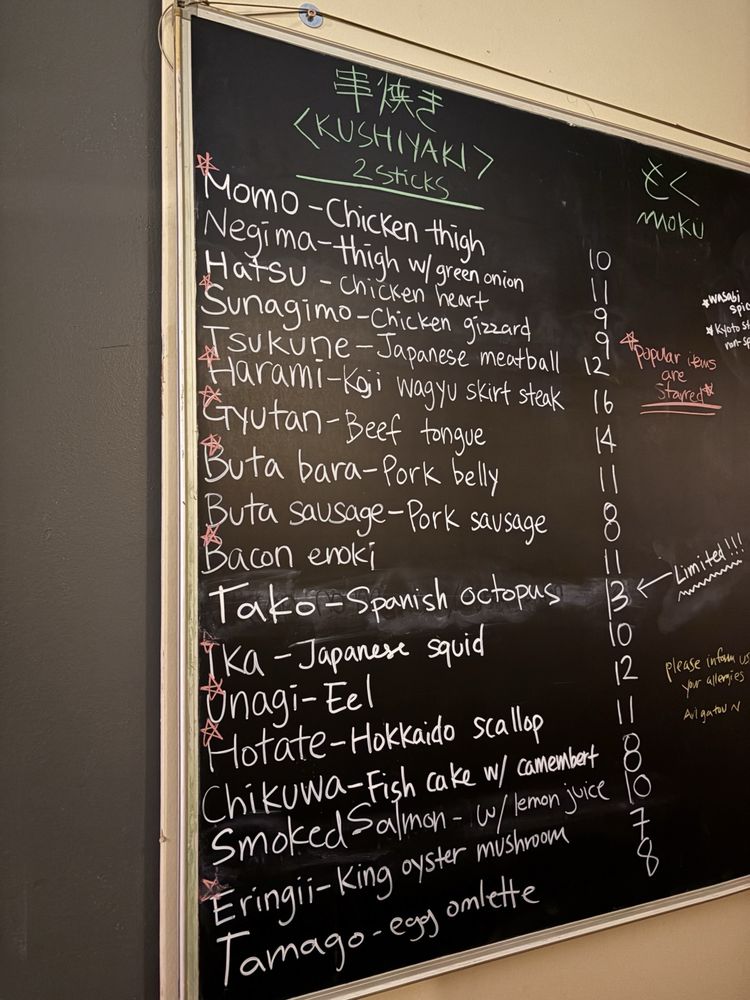 串焼き
<KUSHIYAKI>
2 sticks
Momo - Chicken thigh 10
Negima - thigh w/ green onion 11
Hatsu - Chicken heart 9
Sunagimo - Chicken gizzard 9
Tsukune - Japanese meatball 12
Harami - Koji wagyu skirt steak 16
Gyutan - Beef tongue 14
Buta bara - Pork belly 11
Buta sausage - Pork sausage 8
Bacon enoki 11
Tako - Spanish octopus 13 ← Limited!!!
Ika - Japanese squid 10
Unagi - Eel 12
Hotate - Hokkaido scallop 11
Chikuwa - Fish cake w/ camembert 8
Smoked Salmon - w/ lemon juice 10
Eringii - King oyster mushroom 7
Tamago - egg omlette 8
とく
MOKU
wasabi
Kyoto
Popular items
are
Starred
please inform us
your allergies